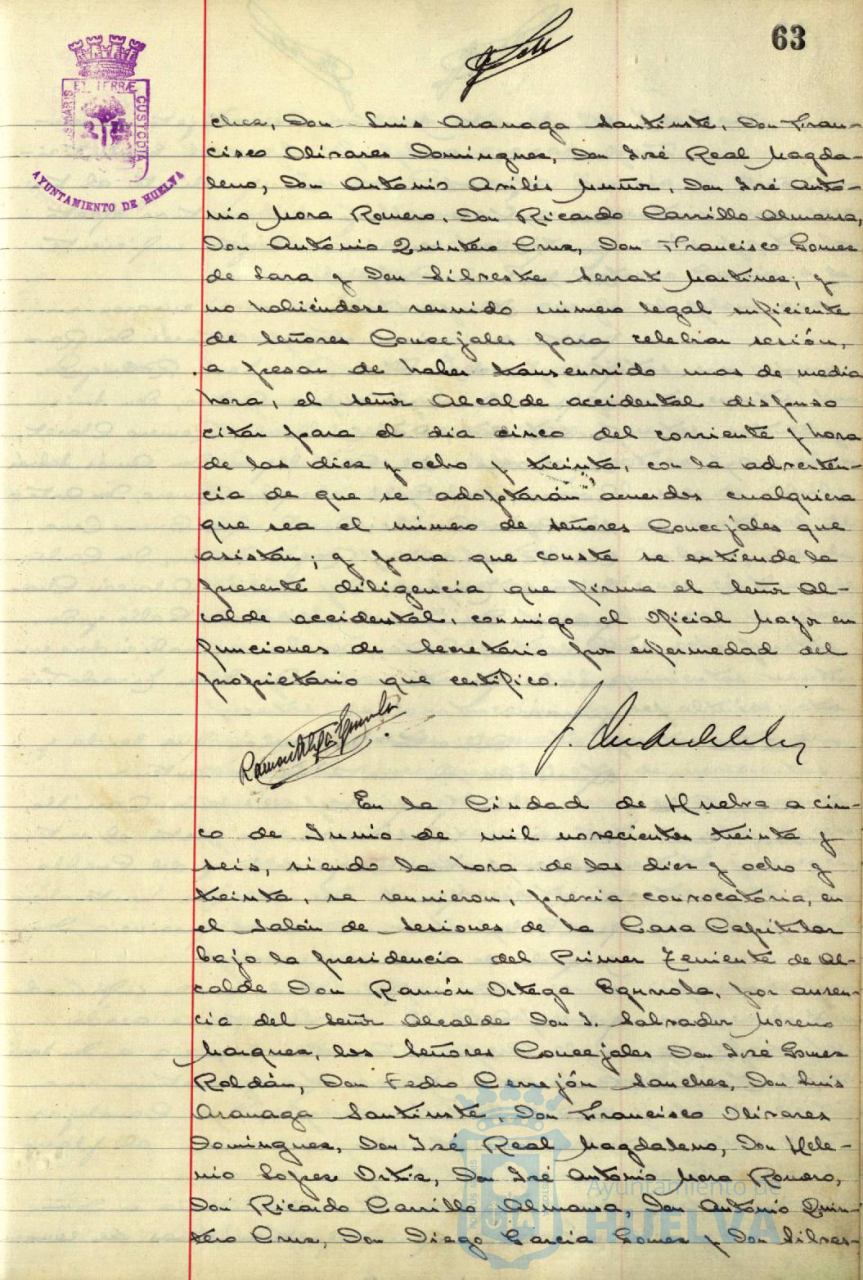 63
PORTUS MARIS ET TERRÆ CUSTODIA
AYUNTAMIENTO DE HUELVA
chez, Don Luis Aranaga Santinste, Don Fran-
cisco Olivares Dominguez, Don José Real Magda-
leno, Don Antonio Avilés Muñoz, Don José Anto-
nio Mora Romero, Don Ricardo Carrillo Almansa,
Don Antonio Quintero Cruz, Don Francisco Gomez
de Lara y Don Silvestre Serrat Martinez; y
no habiéndose reunido número legal suficiente
de Señores Concejales para celebrar sesión,
a pesar de haber transcurrido mas de media
hora, el Señor Alcalde accidental dispuso
citar para el dia cinco del corriente y hora
de las diez y ocho y treinta, con la adverten-
cia de que se adoptarán acuerdos cualquiera
que sea el número de Señores Concejales que
asistan; y para que conste se extiende la
presente diligencia que firma el Señor Al-
calde accidental, conmigo el Oficial Mayor en
funciones de Secretario por enfermedad del
propietario que certifico.
En la Ciudad de Huelva a cin-
co de Junio de mil novecientos treinta y
seis, siendo la hora de las diez y ocho y
treinta, se reunieron, previa convocatoria, en
el Salón de Sesiones de la Casa Capitular
bajo la presidencia del Primer Teniente de Al-
calde Don Ramón Ortega Egurrola, por ausen-
cia del Señor Alcalde Don J. Salvador Moreno
Marquez, los Señores Concejales Don José Gomez
Roldán, Don Pedro Cerrejón Sanchez, Don Luis
Aranaga Santinste, Don Francisco Olivares
Dominguez, Don José Real Magdaleno, Don Hele-
nio Lopez Ortiz, Don José Antonio Mora Romero,
Don Ricardo Carrillo Almansa, Don Antonio Quin-
tero Cruz, Don Diego Garcia Gomez y Don Silves-
Ayuntamiento de
HUELVA